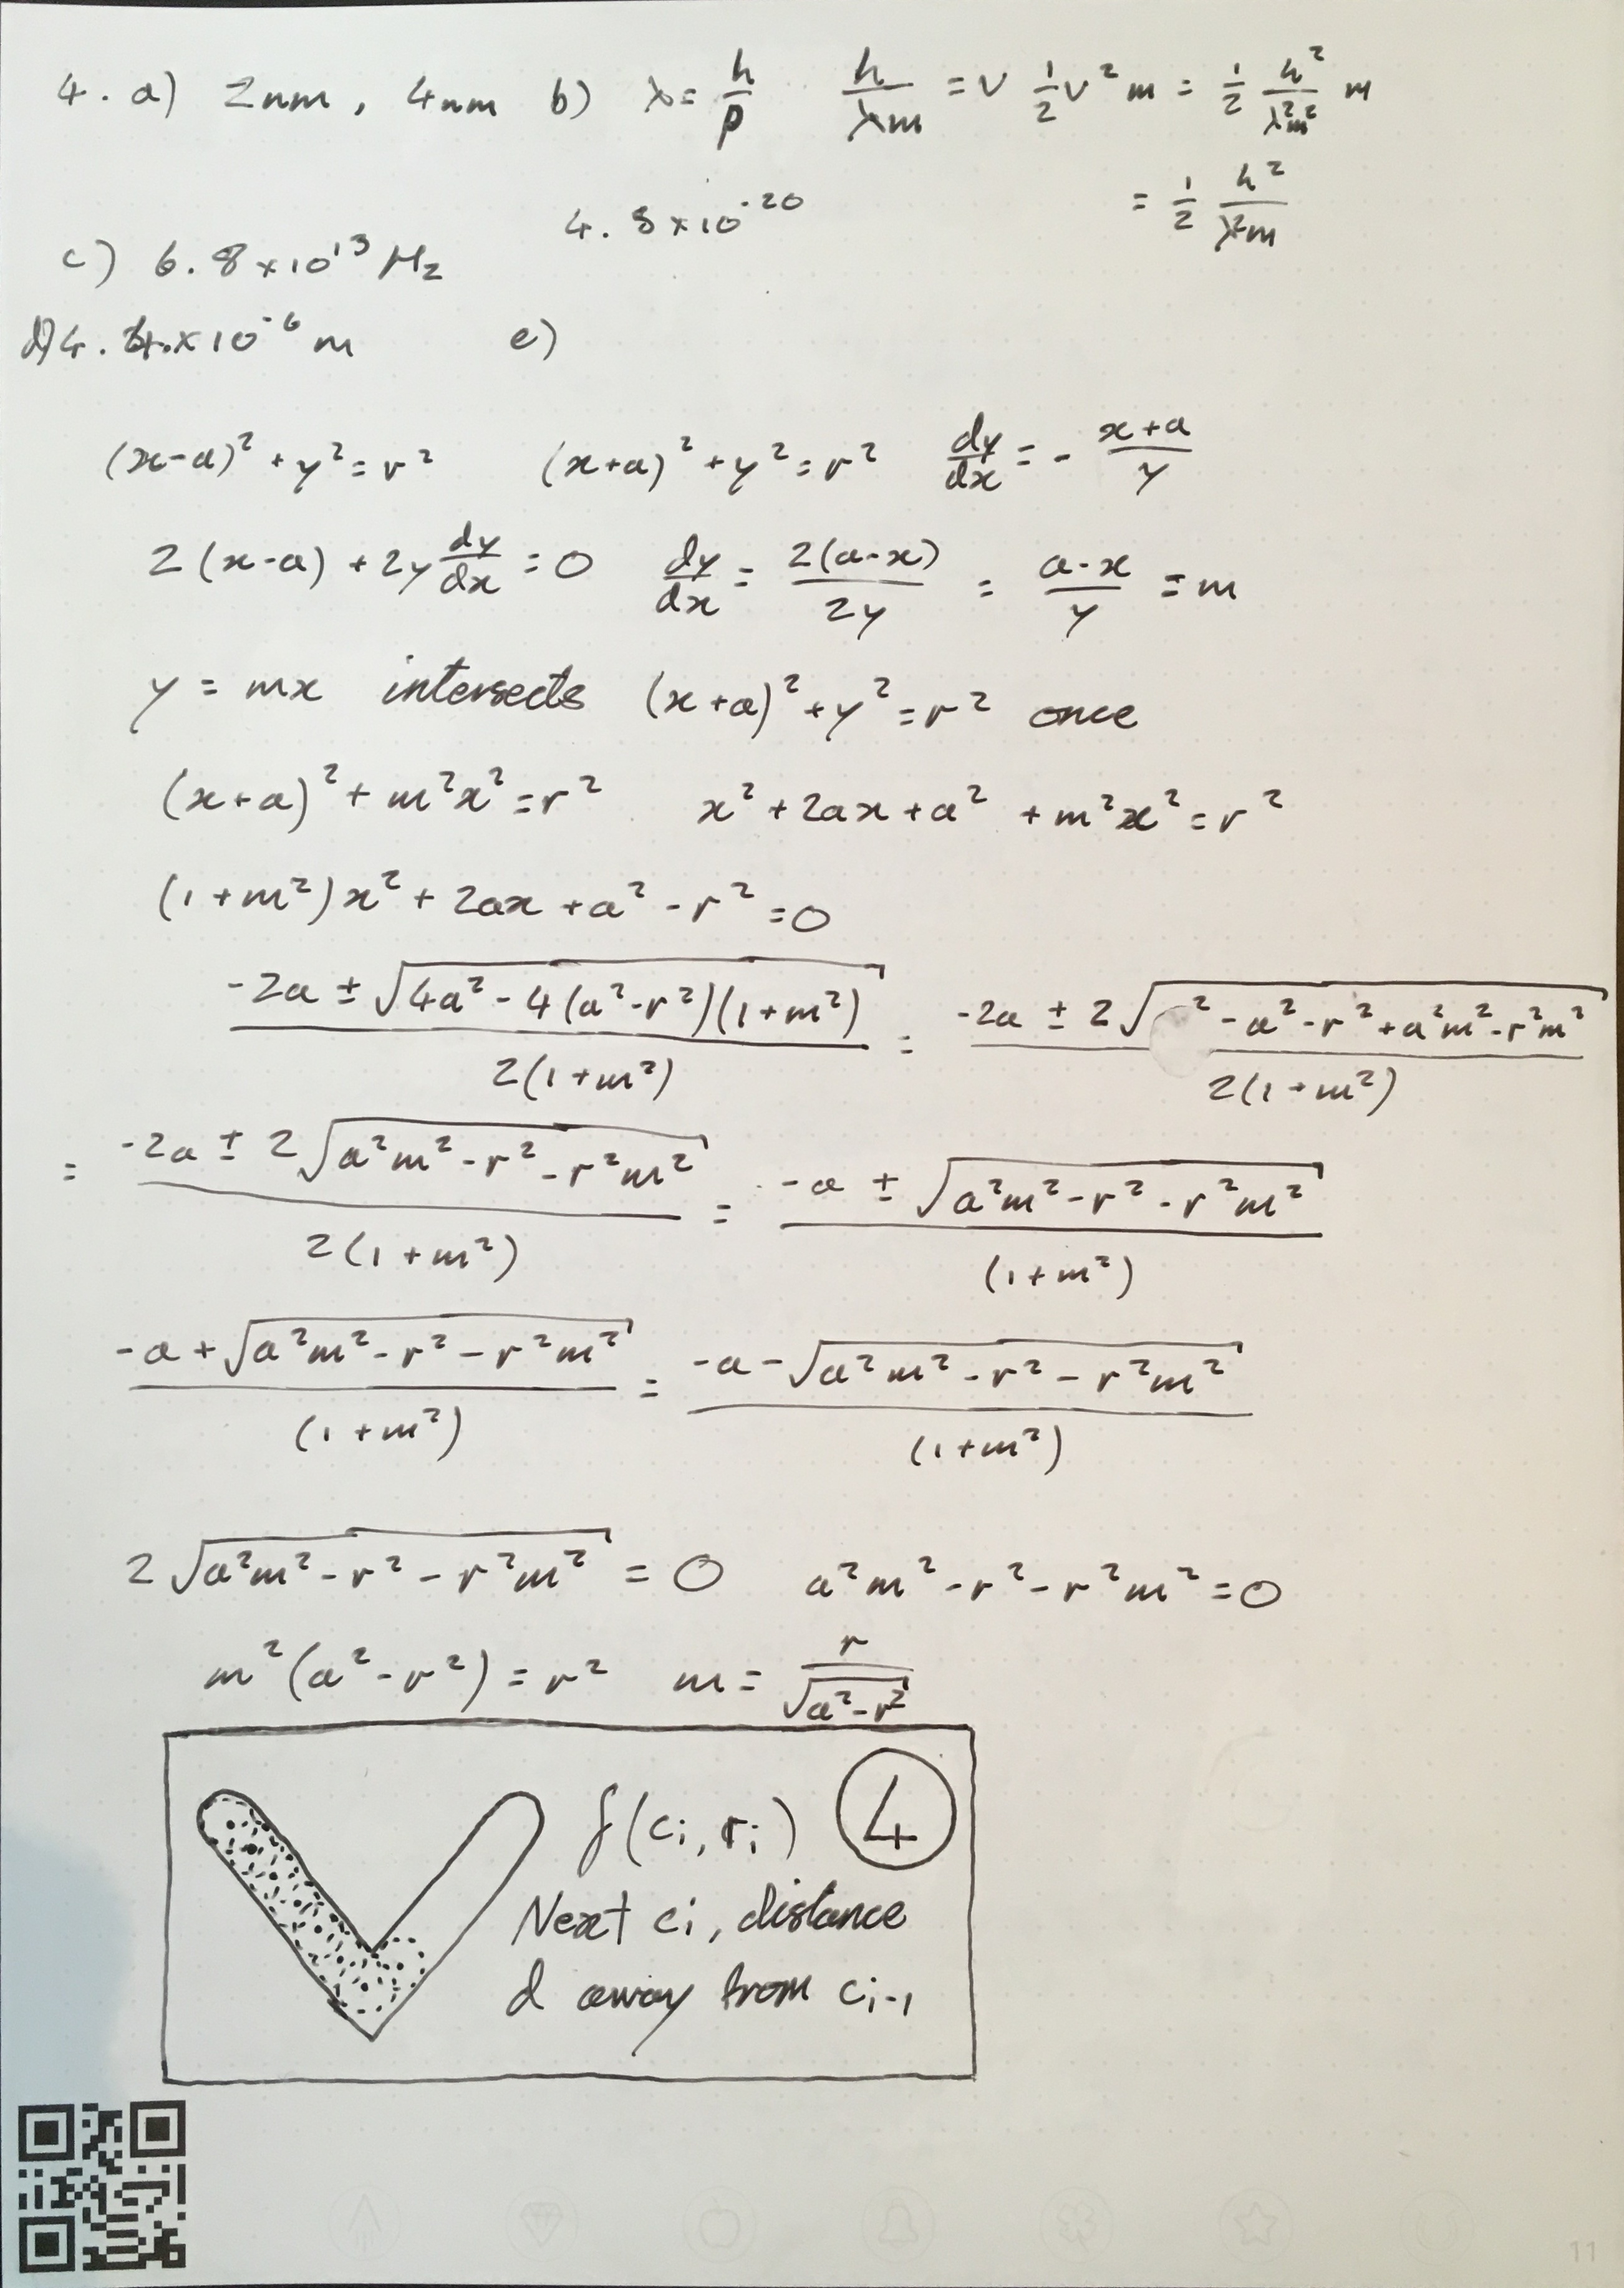 4. a) 2nm, 4nm b) λ = h/p h/λm = v 1/2 v²m = 1/2 h²/λ²m² m
= 1/2 h²/λ²m
4.8×10⁻²⁰
c) 6.8×10¹³ Hz
d) 4. ×10⁻⁶ m e)
(x-a)² + y² = r² (x+a)² + y² = r² dy/dx = - x+a/y
2(x-a) + 2y dy/dx = 0 dy/dx = 2(a-x)/2y = a-x/y = m
y = mx intersects (x+a)² + y² = r² once
(x+a)² + m²x² = r² x² + 2ax + a² + m²x² = r²
(1+m²)x² + 2ax + a² - r² = 0
-2a ± √4a² - 4(a²-r²)(1+m²) / 2(1+m²) = -2a ± 2√ ² - a² - r² + a²m² - r²m² / 2(1+m²)
= -2a ± 2√a²m² - r² - r²m² / 2(1+m²) = -a ± √a²m² - r² - r²m² / (1+m²)
-a + √a²m² - r² - r²m² / (1+m²) = -a - √a²m² - r² - r²m² / (1+m²)
2√a²m² - r² - r²m² = 0 a²m² - r² - r²m² = 0
m²(a²-r²) = r² m = r/√a²-r²
f(cᵢ, rᵢ) 4
Next cᵢ, distance
d away from cᵢ₋₁
11